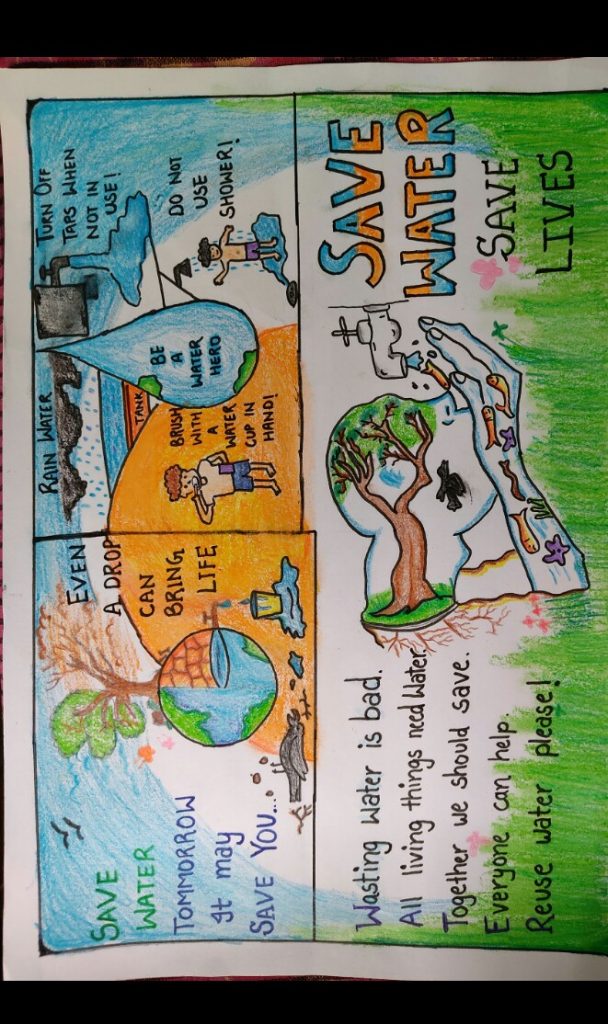 SAVE
WATER
TOMMORROW
It may
SAVE YOU...
EVEN
A DROP
CAN
BRING
LIFE
RAIN WATER
TANK
BRUSH
WITH
A
WATER
CUP IN
HAND!
BE
A
WATER
HERO
TURN OFF
TAPS WHEN
NOT IN
USE!
DO NOT
USE
SHOWER!
Wasting Water is bad.
All living things need Water
Together we should save.
Everyone can help.
Reuse water please!
SAVE
WATER
SAVE
LIVES